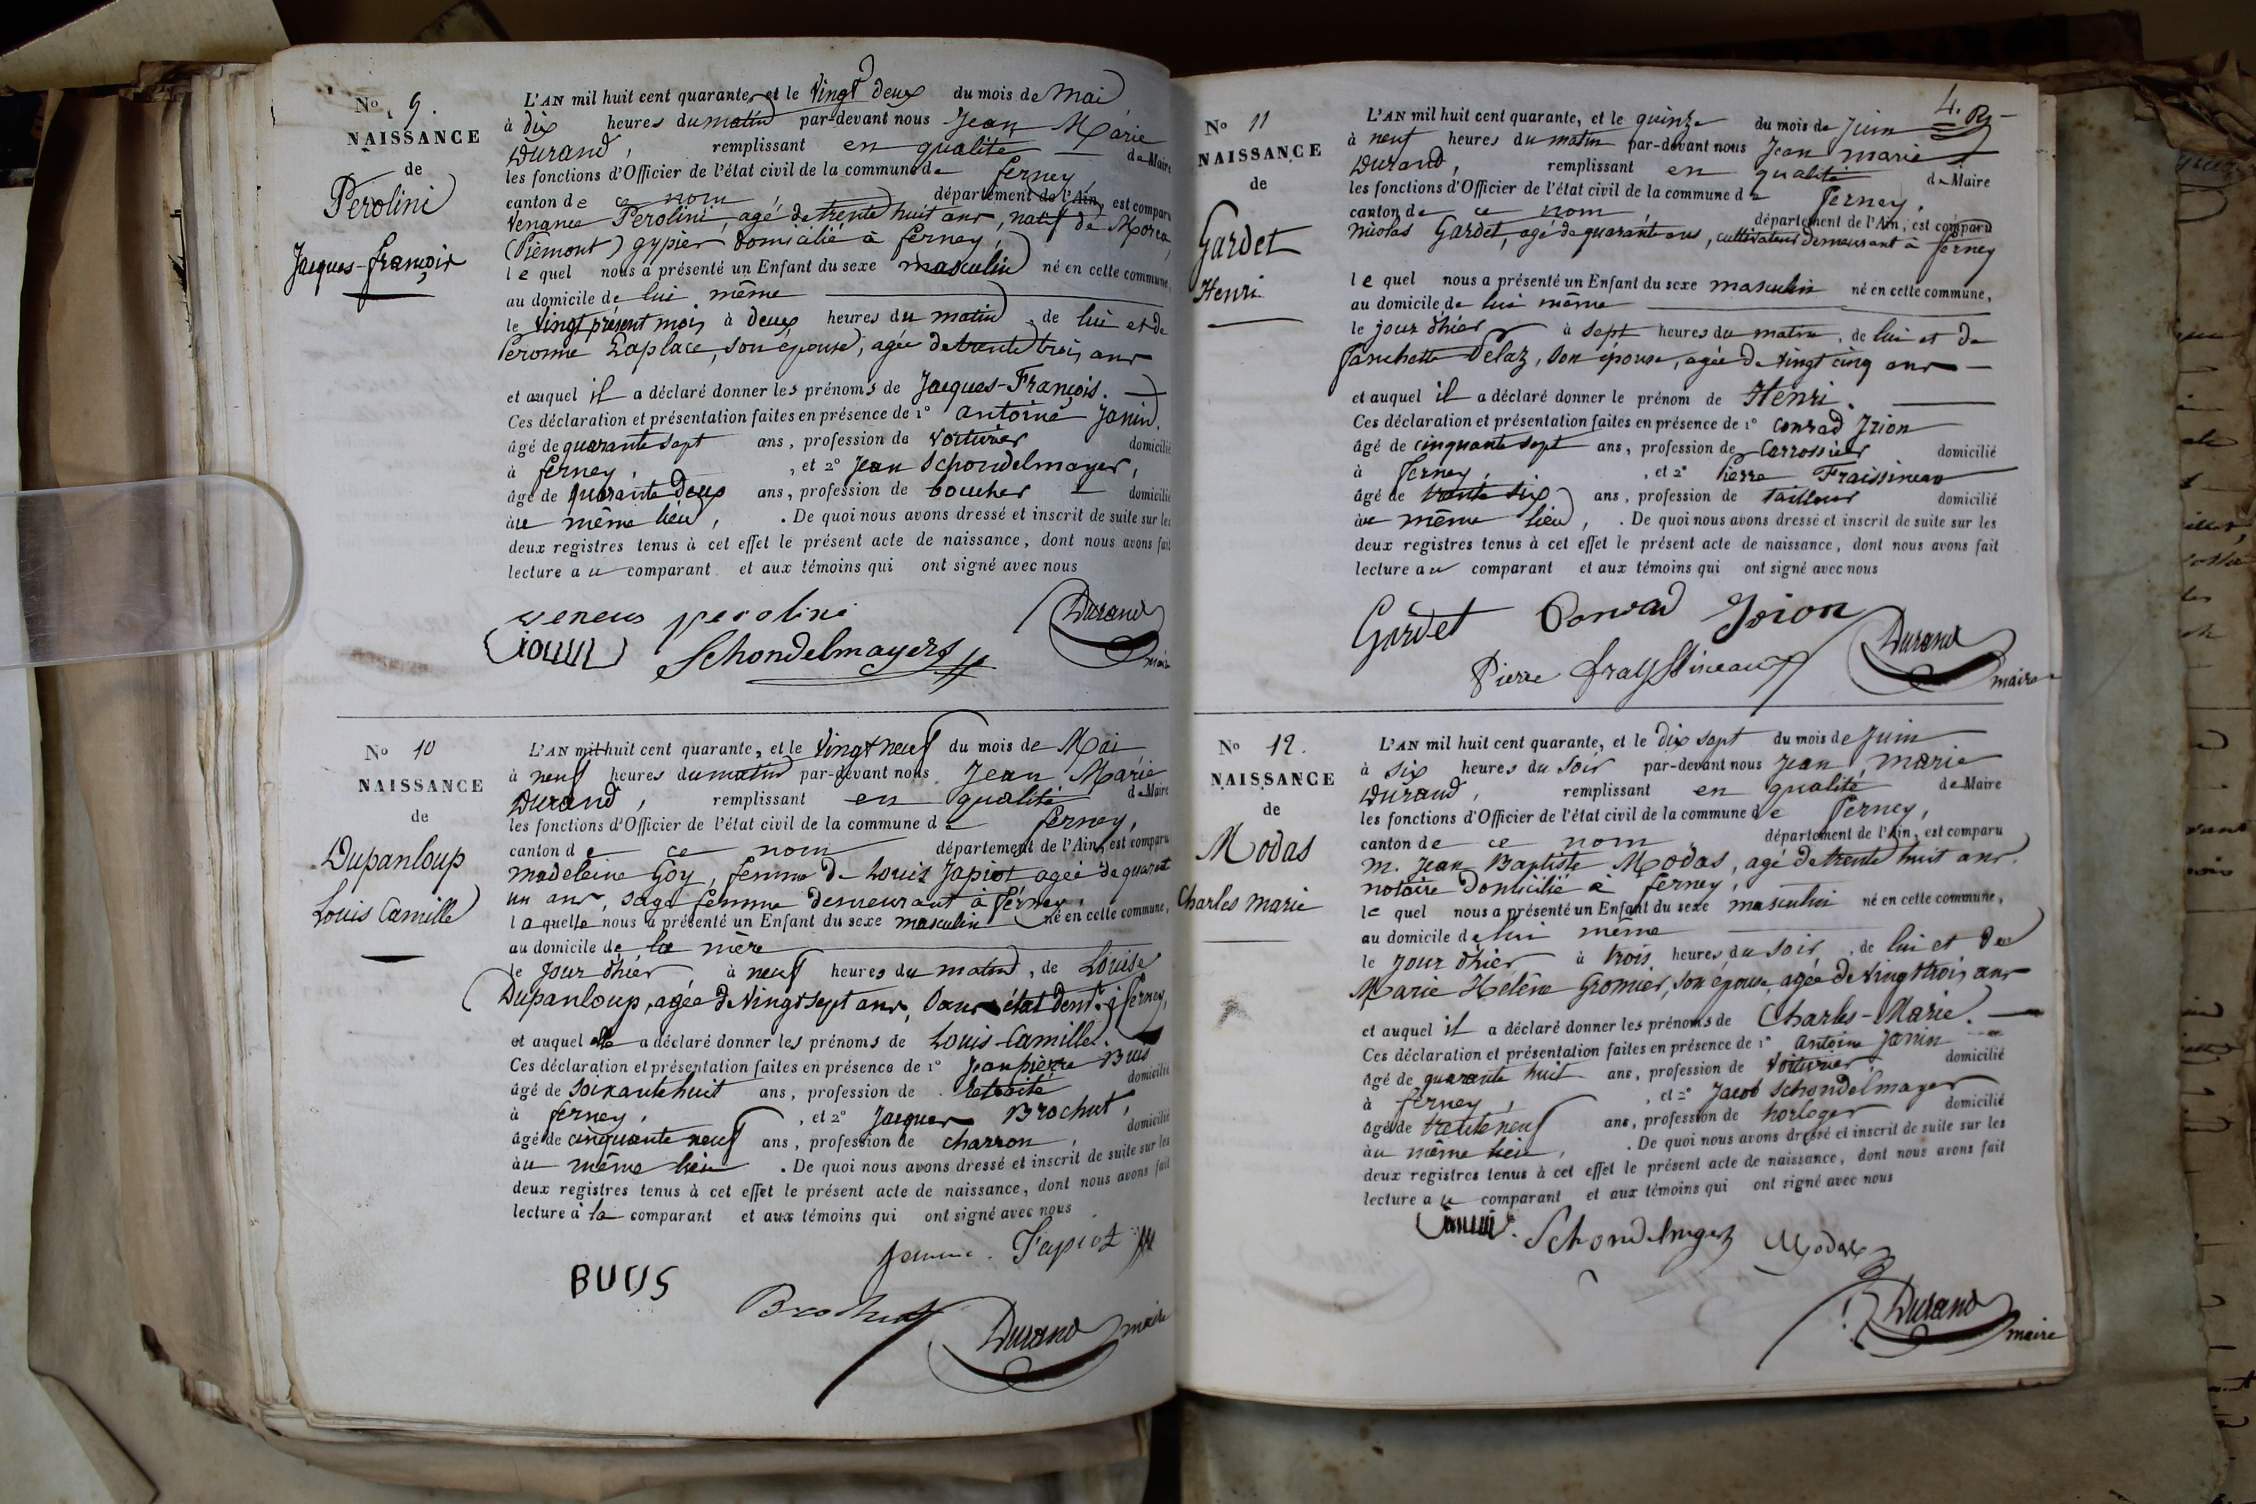 No 9.
NAISSANCE
de
Perolini
Jacques-françois
L'AN mil huit cent quarante, et le vingt deux du mois de Mai
à dix heures du matin par-devant nous Jean Marie
Durand, remplissant en qualité de Maire
les fonctions d'Officier de l'état civil de la commune de ferney,
canton de ce nom département de l'Ain, est comparu
Venance Perolini, agé de trente huit ans, natif de
(Piémont) gypier domicilié à ferney,
le quel nous a présenté un Enfant du sexe masculin né en cette commune,
au domicile de lui même
le vingt présent mois à deux heures du matin, de lui et de
Peronne Laplace, son epouse, agée de trente trois ans
et auquel il a déclaré donner les prénoms de Jacques-François.
Ces déclaration et présentation faites en présence de 1° antoine Janin,
âgé de quarante sept ans, profession de voiturier domicilié
à ferney, , et 2° Jean Schondelmayer,
âgé de quarante deux ans, profession de boucher domicilié
au même lieu, . De quoi nous avons dressé et inscrit de suite sur les
deux registres tenus à cet effet le présent acte de naissance, dont nous avons fait
lecture au comparant et aux témoins qui ont signé avec nous
perolini Durand
Schondelmayer maire
No 10
NAISSANCE
de
Dupanloup
Louis Camille
L'AN mil huit cent quarante, et le vingt neuf du mois de Mai
à neuf heures du matin par-devant nous Jean Marie
Durand, remplissant en qualité de Maire
les fonctions d'Officier de l'état civil de la commune de ferney,
canton de ce nom département de l'Ain, est comparu
madeleine Goy, femme de Louis Japiot agée de quarante
un ans, sage femme demeurant à ferney,
laquelle nous a présenté un Enfant du sexe masculin né en cette commune,
au domicile de la mère
le jour d'hier à neuf heures du matin, de Louise
Dupanloup, agée de vingt sept ans, sans état demt à ferney,
et auquel elle a déclaré donner les prénoms de Louis-Camille.
Ces déclaration et présentation faites en présence de 1° Jean pierre Buis
âgé de soixante huit ans, profession de retraité domicilié
à ferney, , et 2° Jacques Brochut,
âgé de cinquante neuf ans, profession de charron, domicilié
au même lieu . De quoi nous avons dressé et inscrit de suite sur les
deux registres tenus à cet effet le présent acte de naissance, dont nous avons fait
lecture à la comparant et aux témoins qui ont signé avec nous
femme Japiot
BUIS
Brochut
Durand maire
4.
No 11
NAISSANCE
de
Gardet
Henri
L'AN mil huit cent quarante, et le quinze du mois de Juin
à neuf heures du matin par-devant nous Jean marie
Durand, remplissant en qualité de Maire
les fonctions d'Officier de l'état civil de la commune de ferney,
canton de ce nom département de l'Ain, est comparu
nicolas Gardet, agé de quarante ans, cultivateur demeurant à ferney
le quel nous a présenté un Enfant du sexe masculin né en cette commune,
au domicile de lui même
le jour d'hier à sept heures du matin, de lui et de
fanchette Delaz, son épouse, agée de vingt cinq ans
et auquel il a déclaré donner le prénom de Henri.
Ces déclaration et présentation faites en présence de 1° Conrad Irion
âgé de cinquante sept ans, profession de Carrossier domicilié
à ferney, , et 2° Pierre Fraissineau
âgé de trente six ans, profession de Tailleur domicilié
au même lieu, . De quoi nous avons dressé et inscrit de suite sur les
deux registres tenus à cet effet le présent acte de naissance, dont nous avons fait
lecture au comparant et aux témoins qui ont signé avec nous
Gardet Conrad Irion
Pierre frayssineau Durand maire
No 12.
NAISSANCE
de
Modas
Charles marie
L'AN mil huit cent quarante, et le dix sept du mois de Juin
à six heures du soir par-devant nous Jean marie
Durand, remplissant en qualité de Maire
les fonctions d'Officier de l'état civil de la commune de ferney,
canton de ce nom département de l'Ain, est comparu
m. Jean Baptiste Modas, agé de trente huit ans.
notaire domicilié à ferney,
le quel nous a présenté un Enfant du sexe masculin né en cette commune,
au domicile de lui même
le jour d'hier à trois heures du soir, de lui et de
Marie Hélène Gromier, son épouse, agée de vingt trois ans
et auquel il a déclaré donner les prénoms de Charles-Marie.
Ces déclaration et présentation faites en présence de 1° antoine Janin
âgé de quarante huit ans, profession de voiturier, domicilié
à ferney, , et 2° Jacob Schondelmayer
âgé de trente neuf ans, profession de horloger domicilié
au même lieu, . De quoi nous avons dressé et inscrit de suite sur les
deux registres tenus à cet effet le présent acte de naissance, dont nous avons fait
lecture au comparant et aux témoins qui ont signé avec nous
Modas
Durand
maire